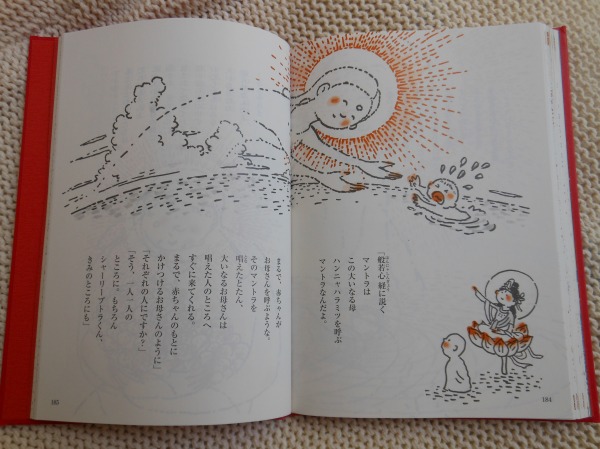 「般若心経に説く
マントラは
この大いなる母
ハンニャハラミツを呼ぶ
マントラなんだよ。
184
まるで、赤ちゃんが
お母さんを呼ぶような。
そのマントラを
唱えたとたん、
大いなるお母さんは
唱えた人のところへ
すぐに来てくれる。
まるで、赤ちゃんのもとに
かけつけるお母さんのように」
「それぞれの人にですか?」
「そう。一人一人の
ところに。もちろん
シャーリープトラくん、
きみのところにも」
185